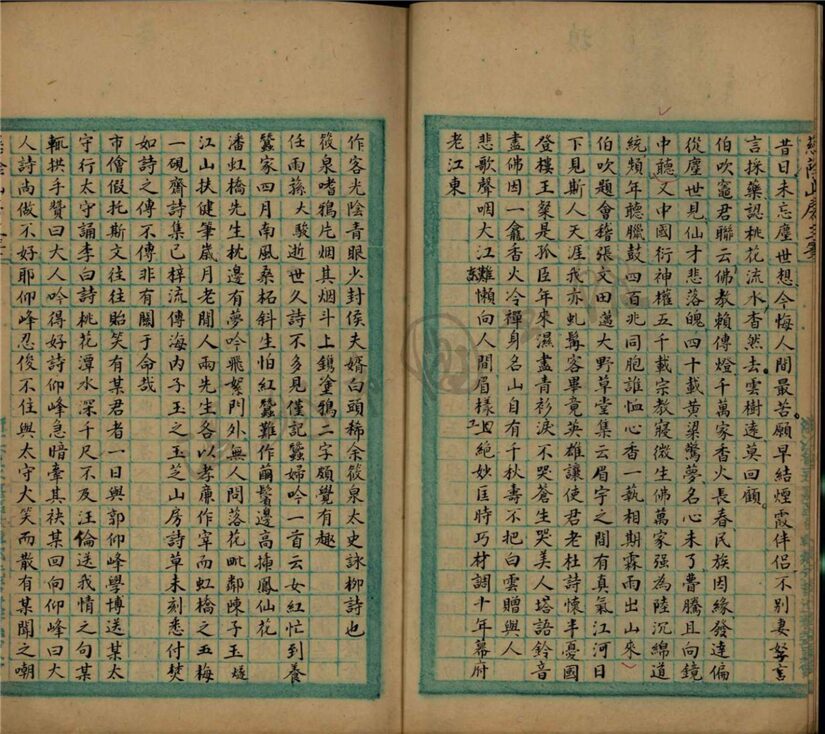 昔日未忘塵世想今悔人間最苦願早結煙霞伴侶不別妻孥言
言採藥認桃花流水杳然去雲樹遠莫回顧
伯吹竈君聯云佛教賴傳燈千萬家香火長春民族因緣發達偏
從塵世見仙才悲落魄四十載黃粱驚夢名心未了瞢騰且向鏡
中聽又中國衍神權五千載宗教寢微生佛萬家强為陸沉綿道
統頻年聽臘鼓四百兆同胞誰恤心香一爇相期霖雨出山來
伯吹題會稽張文田邁大野草堂集云眉宇之間有真氣江河日
下見斯人天涯我亦虬髯客畢竟英雄讓使君老杜詩懷半憂國
登樓王粲是孤臣年來濕盡青衫淚不哭蒼生哭美人塔語鈴音
盡佛因一龕香火冷禪身名山自有千秋壽不把白雲贈與人
悲歌聲咽大江難懶向人間眉樣工絕妙匡時巧材調十年幕府
老江東
作客光陰青眼少封侯夫婿白頭稀余筱泉太史詠柳詩也
筱泉嗜鴉片烟其烟斗上鐫塗鴉二字頗覺有趣
任雨蓀大駿逝世久詩不多見僅記蠶婦吟一首云女紅忙到養
蠶家四月南風桑柘斜生怕紅蠶難作繭鬢邊高揷鳳仙花
潘虹橋先生枕邊有夢吟飛絮門外無人問落花毗鄰陳子玉燧
江山扶健筆歲月老閒人兩先生各以孝廉作宰而虹橋之五梅
一硯齋詩集已梓流傳海內子玉之玉芝山房詩草未刻悉付焚
如詩之傳不傳非有關于命哉
市儈假托斯文往往貽笑有某君者一日與郭仰峰學博送某太
守行太守誦李白詩桃花潭水深千尺不及汪倫送我情之句某
輒拱手贊曰大人吟得好詩仰峰急暗牽其袂某回向仰峰曰大
人詩尚做不好耶仰峰忍俊不住與太守大笑而散有某聞之嘲